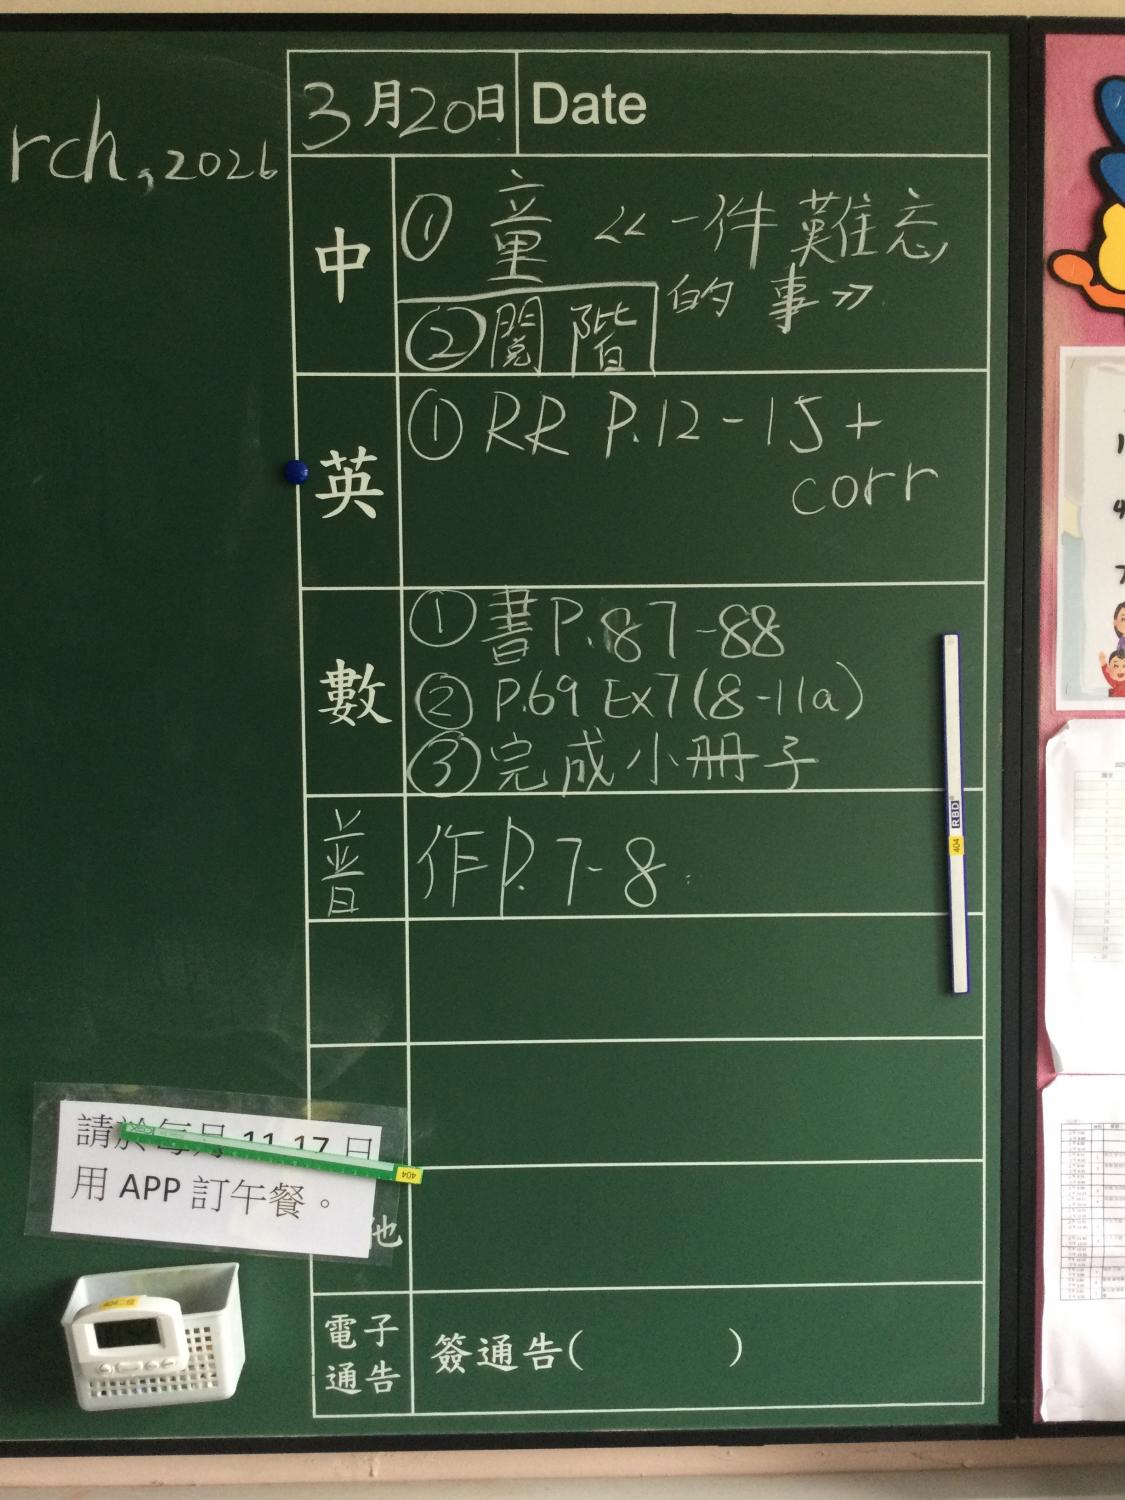 rch, 2026
3月20日 Date
中
① 童 《一件難忘
的事》
② 閱階
英
① RR P.12-15+
corr
數
① 書P.87-88
② P.69 Ex7(8-11a)
③ 完成小冊子
普
作P.7-8
請於每月 11-17 日
用 APP 訂午餐。
他
電子
通告
簽通告( )
RBD
404
404